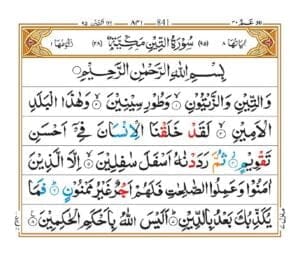 عم ٣٠ 841 ٨٤١ التين ٩٥
اياتها ٨ (٩٥) سُوْرَةُ التِّيْنِ مَكِّيَّةٌ (٢٨) رکوعها ١
بِسْمِ اللّٰهِ الرَّحْمٰنِ الرَّحِيْمِ
وَالتِّيْنِ وَالزَّيْتُوْنِ ۙ وَطُوْرِ سِيْنِيْنَ ۙ وَهٰذَا الْبَلَدِ
الْاَمِيْنِ ۙ لَقَدْ خَلَقْنَا الْاِنْسَانَ فِيْۤ اَحْسَنِ
تَقْوِيْمٍ ۫ ثُمَّ رَدَدْنٰهُ اَسْفَلَ سٰفِلِيْنَ ۙ اِلَّا الَّذِيْنَ
اٰمَنُوْا وَعَمِلُوا الصّٰلِحٰتِ فَلَهُمْ اَجْرٌ غَيْرُ مَمْنُوْنٍ ؕ فَمَا
يُكَذِّبُكَ بَعْدُ بِالدِّيْنِ ؕ اَلَيْسَ اللّٰهُ بِاَحْكَمِ الْحٰكِمِيْنَ